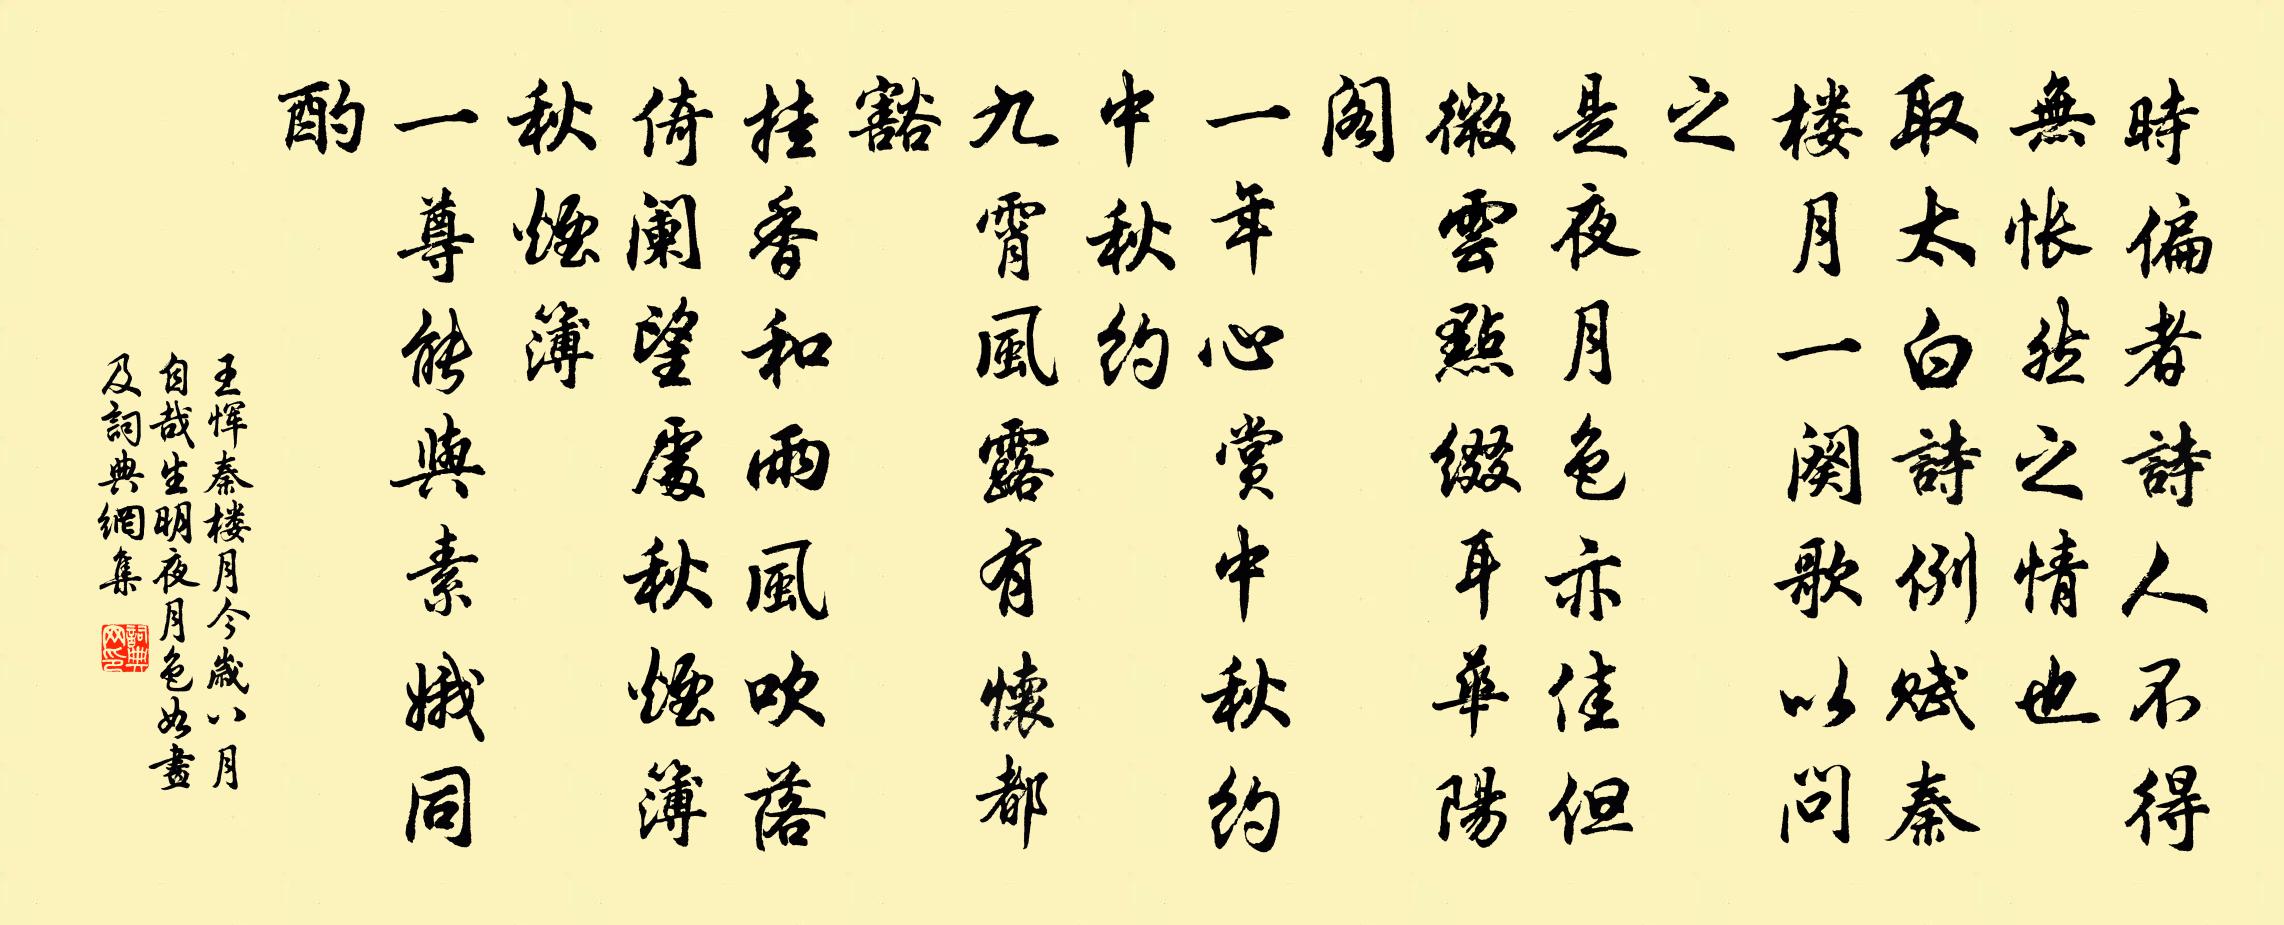 時偏者詩人不得
無悵然之情也
取太白詩例賦秦
楼月一阕歌以问
之
是夜月色亦佳但
微雲點綴耳華陽
阁
一年心赏中秋约
中秋约
九霄風露有懷都
豁
挂香和雨風吹落
倚阑望處秋煙簿
秋煙簿
一尊能與素娥同
酌
王恽秦楼月今歲八月
自哉生明夜月色如畫
及詞典網集
詞典网印